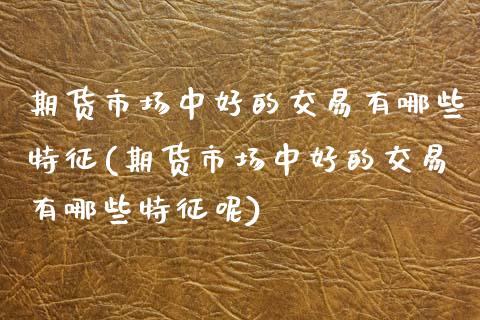 期货市场中好的交易有哪些
特征(期货市场中好的交易
有哪些特征呢)